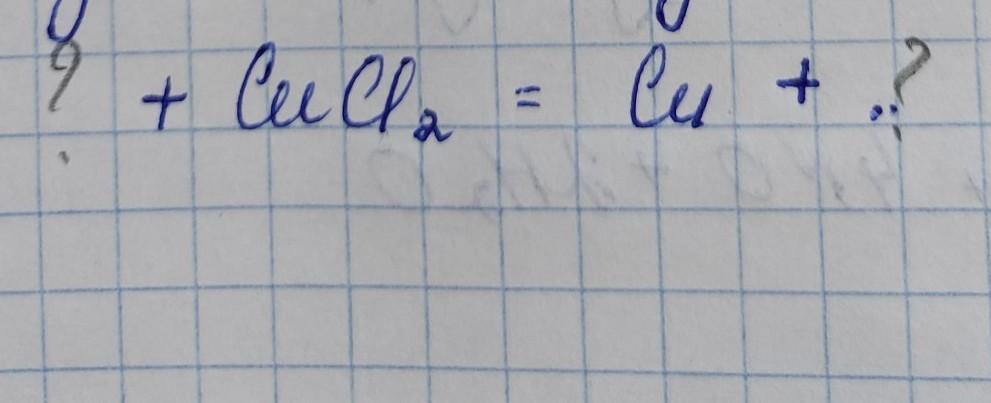 ? + CuCl₂ = Cu + ..?